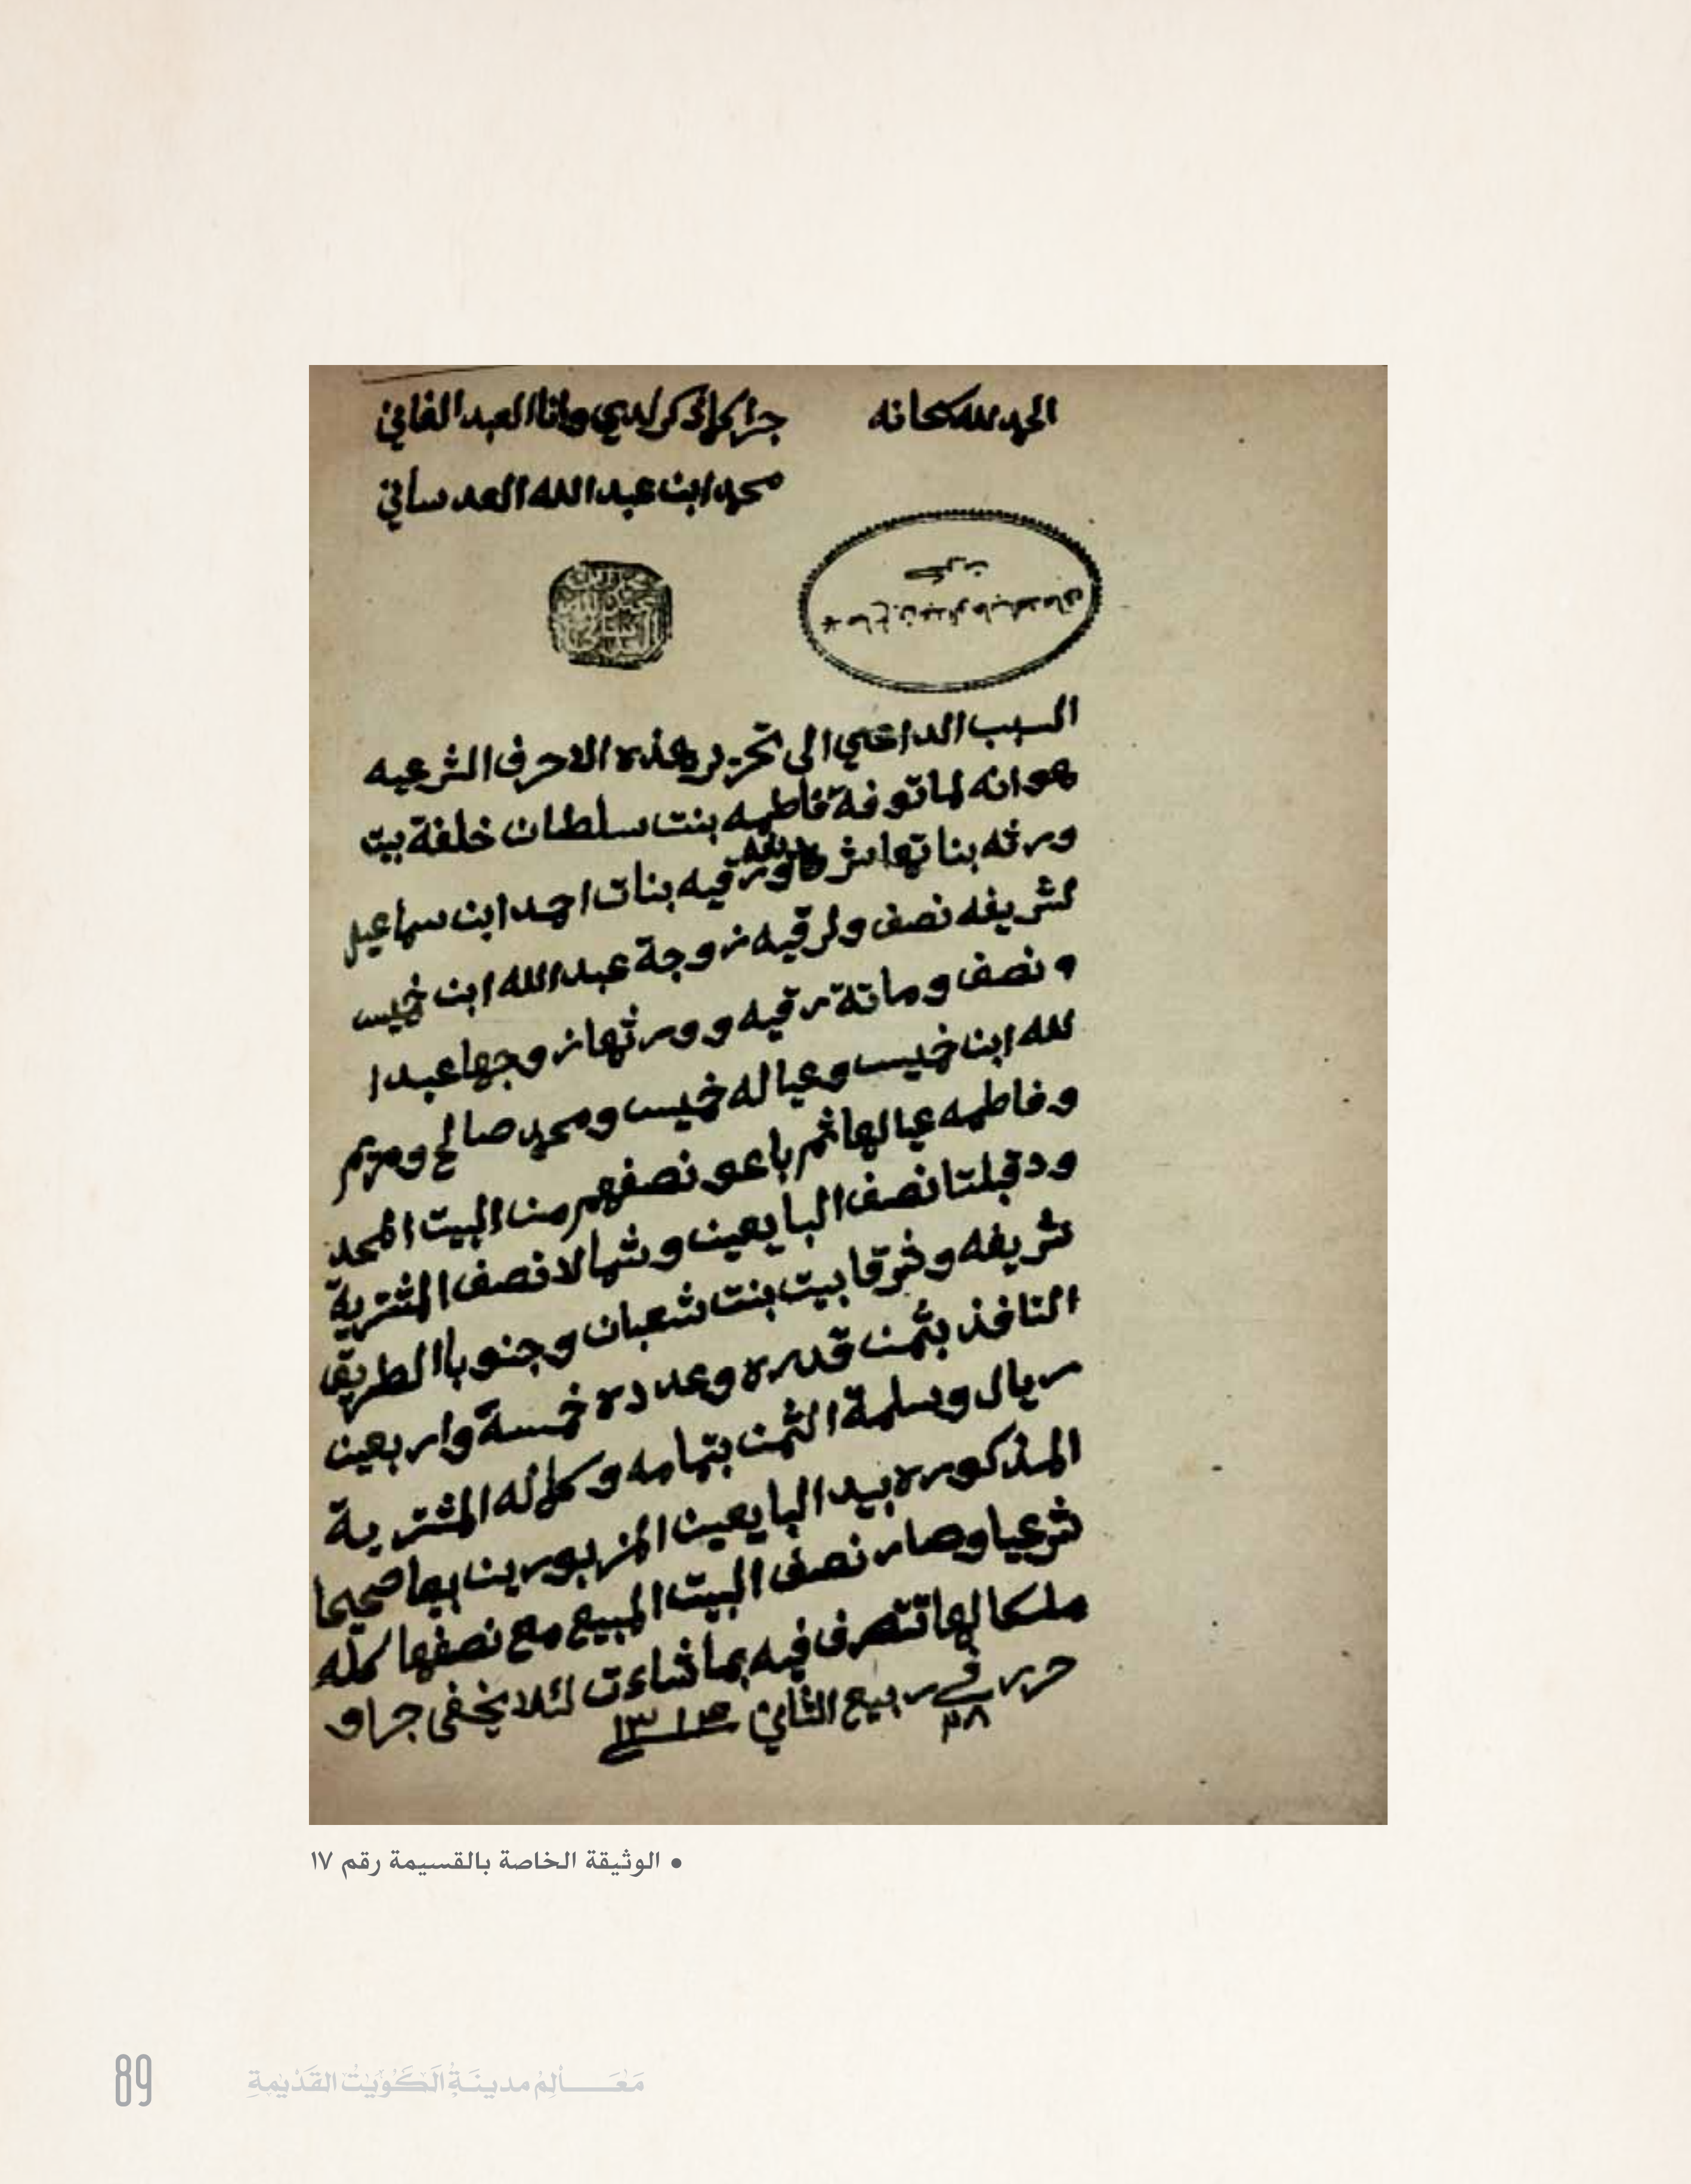 الحمد لله سبحانه
جرا كما ذكر لدي وانا العبد الفاني
محمد ابن عبد الله العدساني
السبب الداعي الى تحرير هذه الاحرف الشرعيه
هو انه لما توفة فاطمه بنت سلطان خلفة بيت
ورثه بناتها شريفه ورقيه بنات احمد ابن سماعيل
لشريفه نصف ولرقيه زوجة عبد الله ابن خميس
ونصف وماتة رقيه وورثها زوجها عبد ا
لله ابن خميس وعياله خميس ومحمد صالح ومريم
وفاطمه عيالها ثم باعو نصفهم من البيت المحد
ود قبلتا نصف البايعين وشمالا نصف المشترية
شريفه وشرقا بيت بنت شعبان وجنوبا الطريق
النافذ بثمن قدره وعدده خمسة واربعين
ريال وسلمة الثمن بتمامه وكماله المشترية
المذكوره بيد البايعين المزبورين بيعا صحيحا
شرعيا وصار نصف البيت المبيع مع نصفها كله
ملكا لها تتصرف فيه بما شاءت لئلا يخفى جرا و
حرر في ٢٨ ربيع الثاني ١٣١٣
• الوثيقة الخاصة بالقسيمة رقم ١٧
89
مَعَـــالِمُ مدينَةِ الكُوَيْتْ القَدْيمَةِ